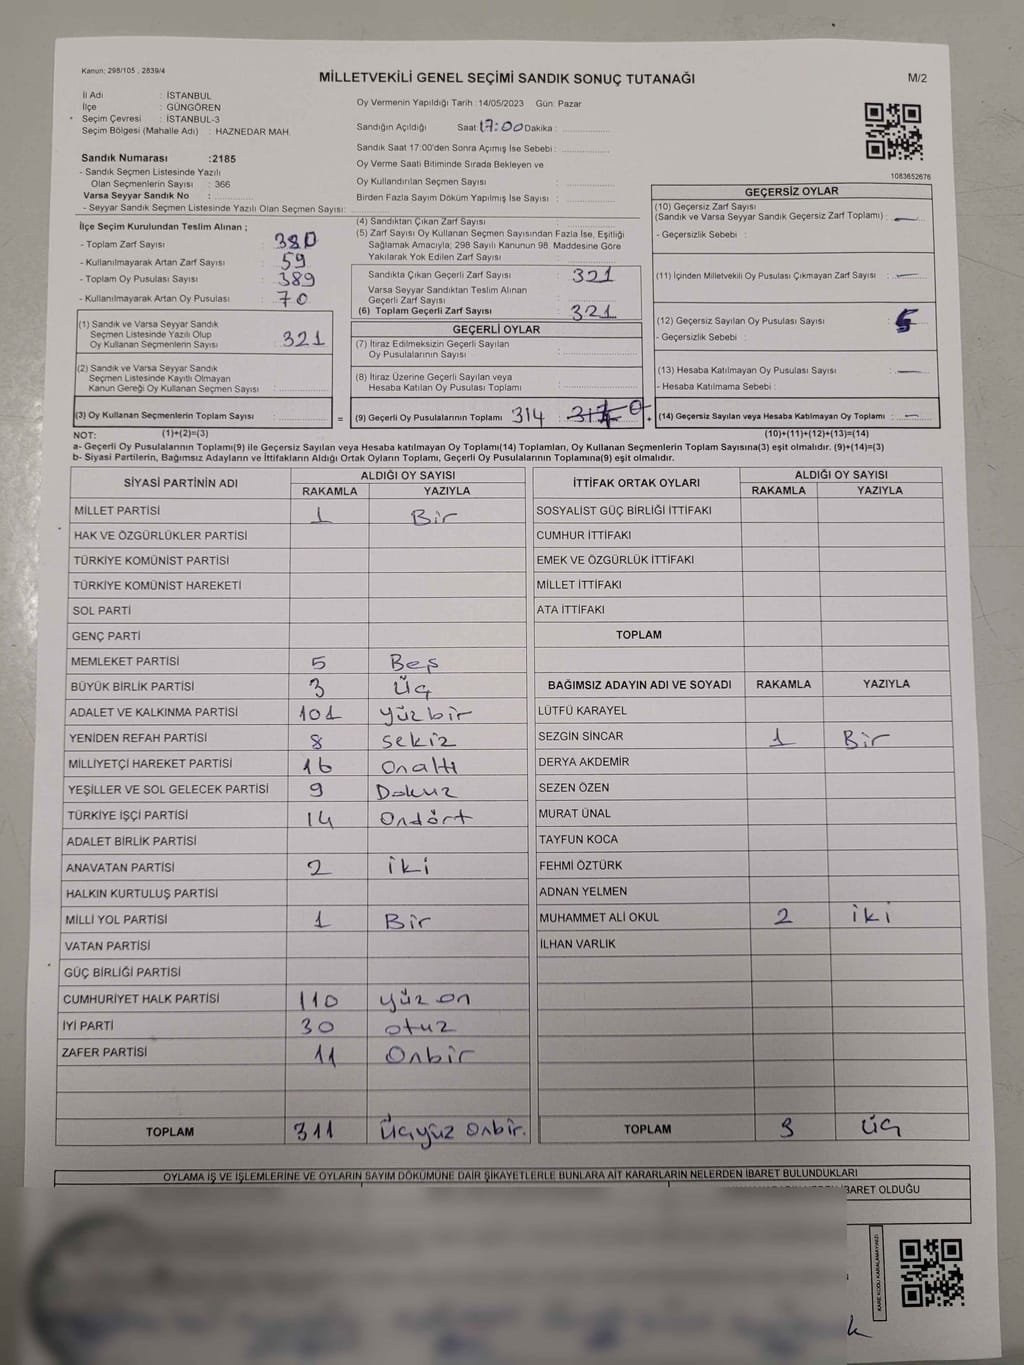 Kanun: 298/105 , 2839/4
MİLLETVEKİLİ GENEL SEÇİMİ SANDIK SONUÇ TUTANAĞI
M/2
İl Adı : İSTANBUL
İlçe : GÜNGÖREN
Seçim Çevresi : İSTANBUL-3
Seçim Bölgesi (Mahalle Adı) : HAZNEDAR MAH.
Sandık Numarası :2185
- Sandık Seçmen Listesinde Yazılı
Olan Seçmenlerin Sayısı : 366
Varsa Seyyar Sandık No :
- Seyyar Sandık Seçmen Listesinde Yazılı Olan Seçmen Sayısı:
Oy Vermenin Yapıldığı Tarih : 14/05/2023 Gün: Pazar
Sandığın Açıldığı Saat 17:00 Dakika :
Sandık Saat 17:00'den Sonra Açımış İse Sebebi :
Oy Verme Saati Bitiminde Sırada Bekleyen ve
Oy Kullandırılan Seçmen Sayısı :
Birden Fazla Sayım Döküm Yapılmış İse Sayısı :
1083652676
İlçe Seçim Kurulundan Teslim Alınan ;
- Toplam Zarf Sayısı : 380
- Kullanılmayarak Artan Zarf Sayısı : 59
- Toplam Oy Pusulası Sayısı : 389
- Kullanılmayarak Artan Oy Pusulası : 70
(1) Sandık ve Varsa Seyyar Sandık
Seçmen Listesinde Yazılı Olup
Oy Kullanan Seçmenlerin Sayısı : 321
(2) Sandık ve Varsa Seyyar Sandık
Seçmen Listesinde Kayıtlı Olmayan
Kanun Gereği Oy Kullanan Seçmen Sayısı :
(3) Oy Kullanan Seçmenlerin Toplam Sayısı :
(1)+(2)=(3)
(4) Sandıktan Çıkan Zarf Sayısı :
(5) Zarf Sayısı Oy Kullanan Seçmen Sayısından Fazla İse, Eşitliği
Sağlamak Amacıyla; 298 Sayılı Kanunun 98. Maddesine Göre
Yakılarak Yok Edilen Zarf Sayısı :
Sandıkta Çıkan Geçerli Zarf Sayısı : 321
Varsa Seyyar Sandıktan Teslim Alınan
Geçerli Zarf Sayısı :
(6) Toplam Geçerli Zarf Sayısı : 321
GEÇERLİ OYLAR
(7) İtiraz Edilmeksizin Geçerli Sayılan
Oy Pusulalarının Sayısı :
(8) İtiraz Üzerine Geçerli Sayılan veya
Hesaba Katılan Oy Pusulası Toplamı :
= (9) Geçerli Oy Pusulalarının Toplamı 314 : +
GEÇERSİZ OYLAR
(10) Geçersiz Zarf Sayısı
(Sandık ve Varsa Seyyar Sandık Geçersiz Zarf Toplamı) : —
- Geçersizlik Sebebi :
(11) İçinden Milletvekili Oy Pusulası Çıkmayan Zarf Sayısı : —
(12) Geçersiz Sayılan Oy Pusulası Sayısı :
- Geçersizlik Sebebi :
(13) Hesaba Katılmayan Oy Pusulası Sayısı : —
- Hesaba Katılmama Sebebi :
(14) Geçersiz Sayılan veya Hesaba Katılmayan Oy Toplamı : —
(10)+(11)+(12)+(13)=(14)
NOT:
a- Geçerli Oy Pusulalarının Toplamı(9) ile Geçersiz Sayılan veya Hesaba katılmayan Oy Toplamı(14) Toplamları, Oy Kullanan Seçmenlerin Toplam Sayısına(3) eşit olmalıdır. (9)+(14)=(3)
b- Siyasi Partilerin, Bağımsız Adayların ve İttifakların Aldığı Ortak Oyların Toplamı, Geçerli Oy Pusulalarının Toplamına(9) eşit olmalıdır.
SİYASİ PARTİNİN ADI ALDIĞI OY SAYISI
RAKAMLA YAZIYLA
MİLLET PARTİSİ 1 Bir
HAK VE ÖZGÜRLÜKLER PARTİSİ
TÜRKİYE KOMÜNİST PARTİSİ
TÜRKİYE KOMÜNİST HAREKETİ
SOL PARTİ
GENÇ PARTİ
MEMLEKET PARTİSİ 5 Beş
BÜYÜK BİRLİK PARTİSİ 3 Üç
ADALET VE KALKINMA PARTİSİ 101 yüzbir
YENİDEN REFAH PARTİSİ 8 sekiz
MİLLİYETÇİ HAREKET PARTİSİ 16 Onaltı
YEŞİLLER VE SOL GELECEK PARTİSİ 9 Dokuz
TÜRKİYE İŞÇİ PARTİSİ 14 Ondört
ADALET BİRLİK PARTİSİ
ANAVATAN PARTİSİ 2 iki
HALKIN KURTULUŞ PARTİSİ
MİLLİ YOL PARTİSİ 1 Bir
VATAN PARTİSİ
GÜÇ BİRLİĞİ PARTİSİ
CUMHURİYET HALK PARTİSİ 110 yüz on
İYİ PARTİ 30 otuz
ZAFER PARTİSİ 11 Onbir
TOPLAM 311 Üçyüz Onbir.
İTTİFAK ORTAK OYLARI ALDIĞI OY SAYISI
RAKAMLA YAZIYLA
SOSYALİST GÜÇ BİRLİĞİ İTTİFAKI
CUMHUR İTTİFAKI
EMEK VE ÖZGÜRLÜK İTTİFAKI
MİLLET İTTİFAKI
ATA İTTİFAKI
TOPLAM
BAĞIMSIZ ADAYIN ADI VE SOYADI RAKAMLA YAZIYLA
LÜTFÜ KARAYEL
SEZGİN SİNCAR 1 Bir
DERYA AKDEMİR
SEZEN ÖZEN
MURAT ÜNAL
TAYFUN KOCA
FEHMİ ÖZTÜRK
ADNAN YELMEN
MUHAMMET ALİ OKUL 2 iki
İLHAN VARLIK
TOPLAM 3 üç
OYLAMA İŞ VE İŞLEMLERİNE VE OYLARIN SAYIM DÖKÜMÜNE DAİR ŞİKAYETLERLE BUNLARA AİT KARARLARIN NELERDEN İBARET BULUNDUKLARI
İBARET OLDUĞU
KARE KODU KARALAMAYINIZ!